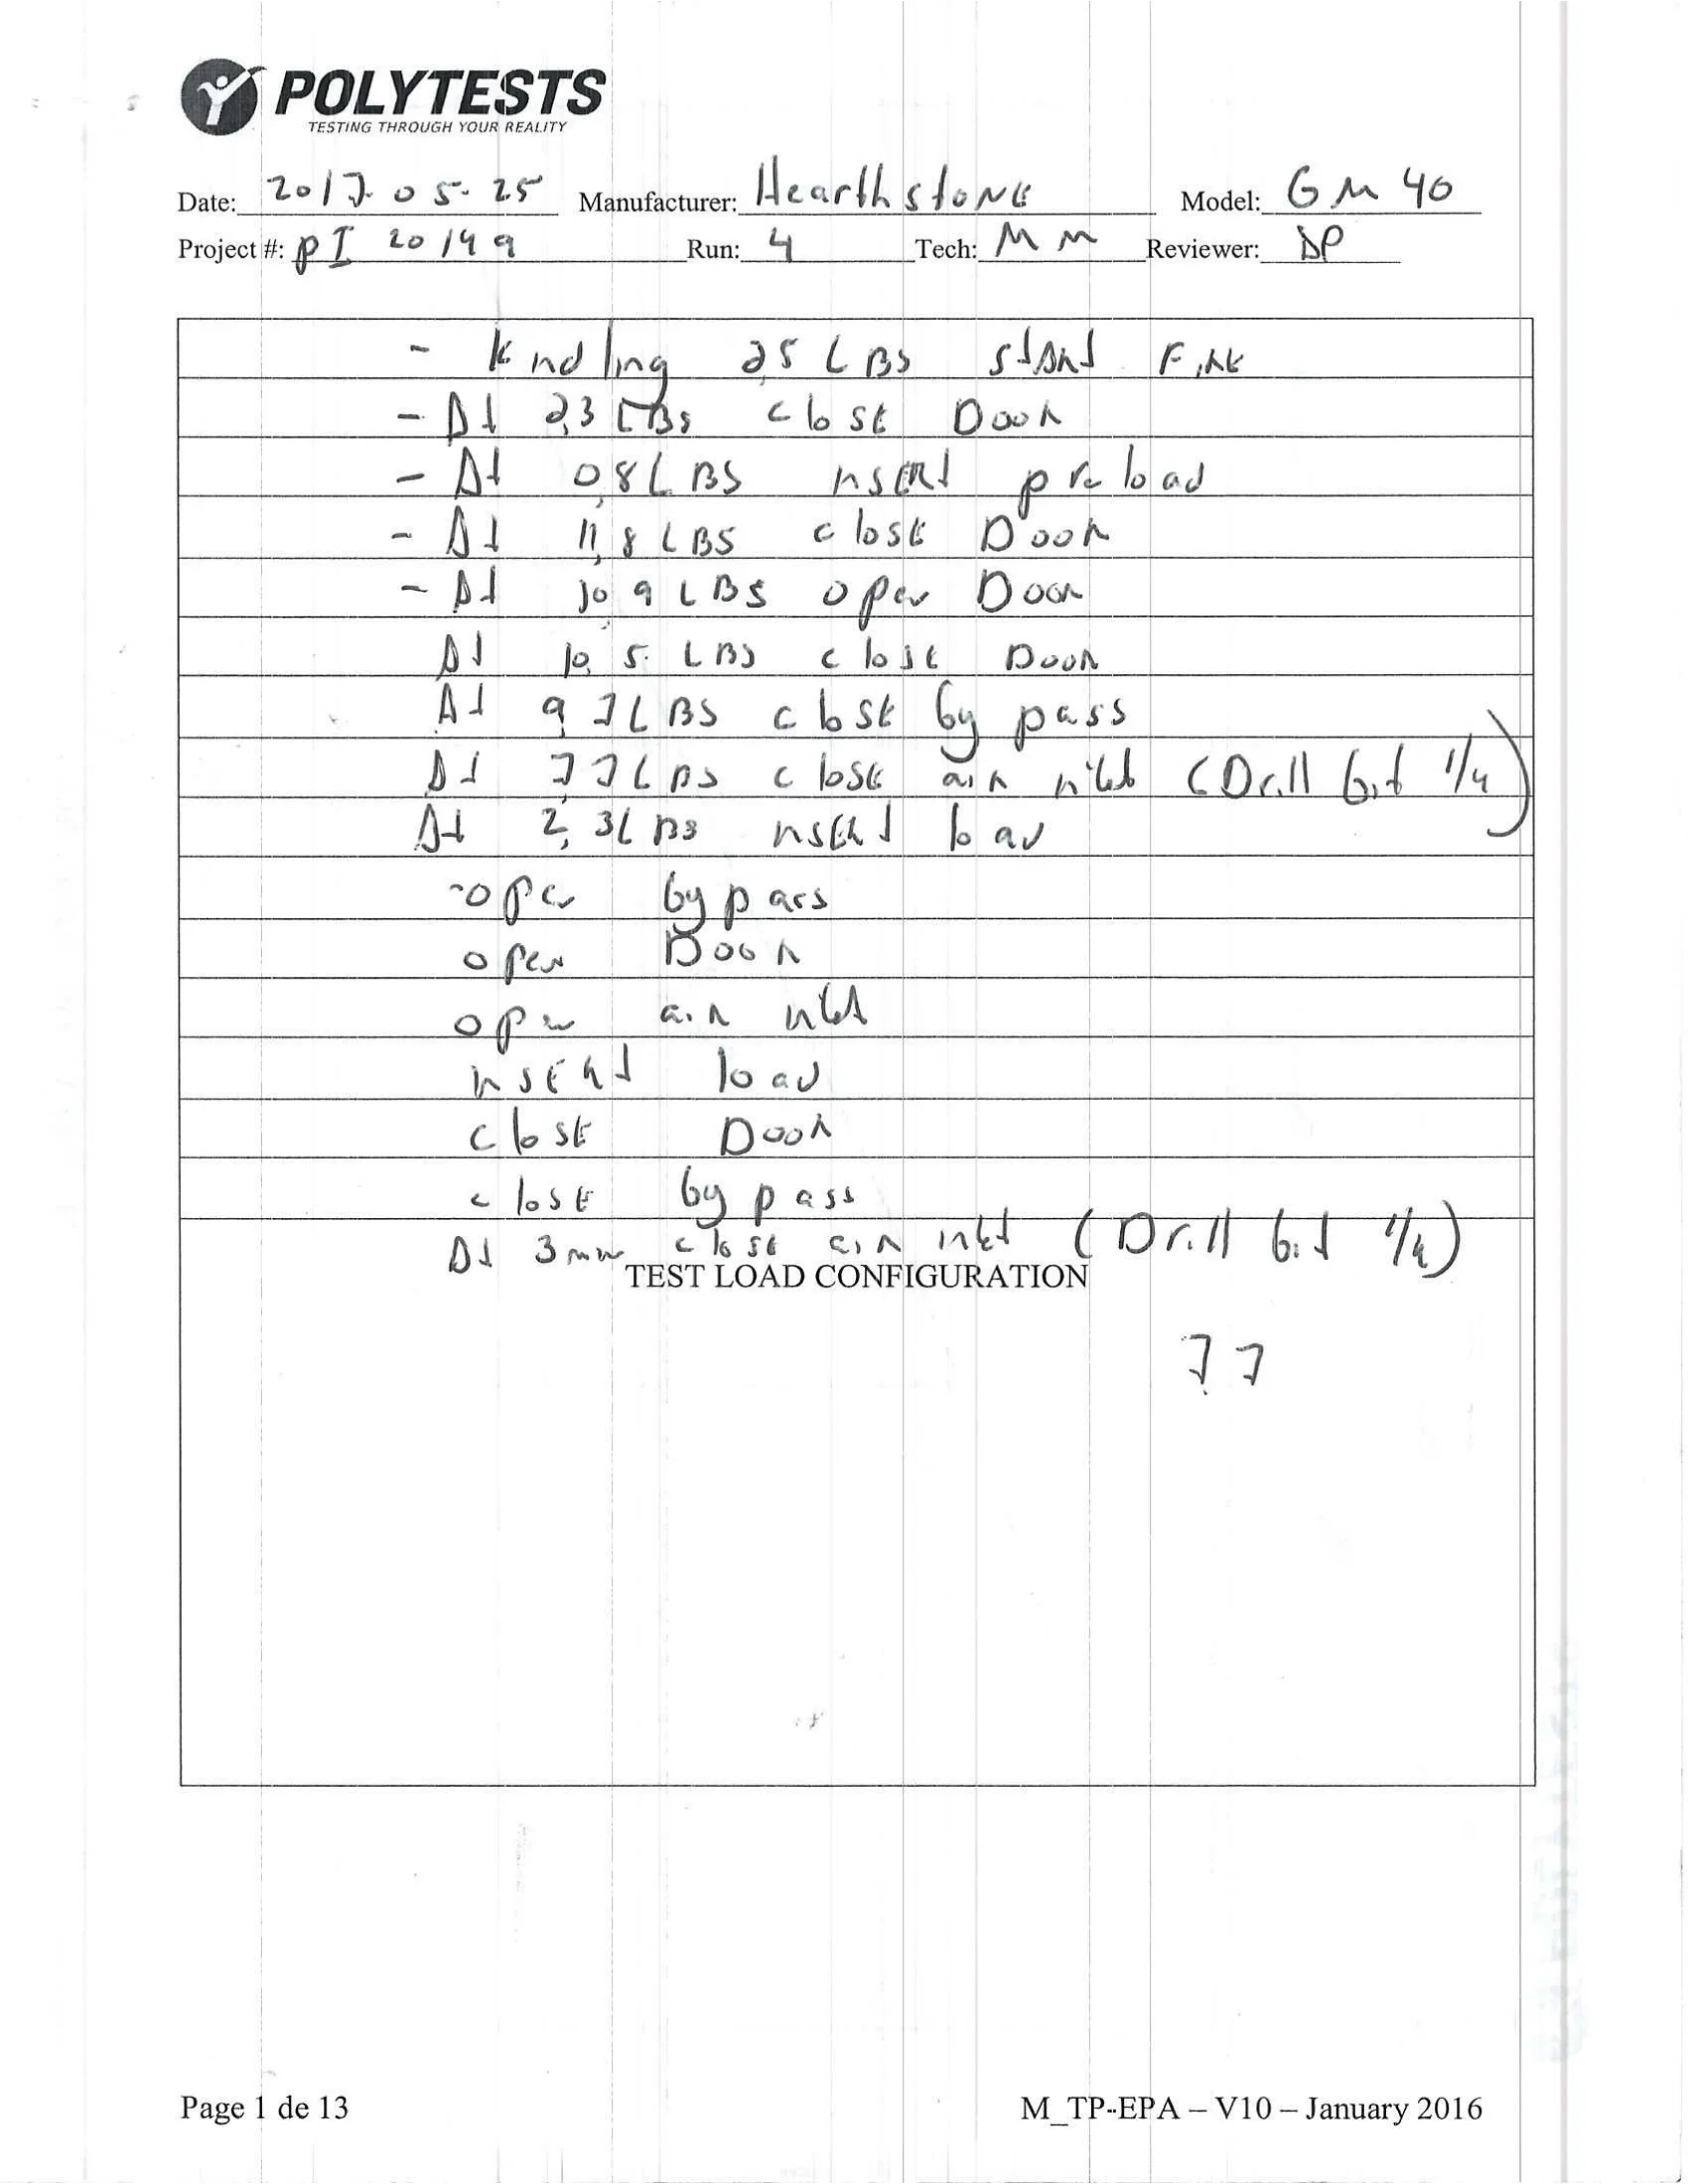 POLYTESTS
TESTING THROUGH YOUR REALITY
Date: 2017-05-25 Manufacturer: HearthstoNE Model: GM 40
Project #: PI 20149 Run: 4 Tech: MM Reviewer: DP
- kindling 2,5 LBS stARt FiRE
- At 2,3 LBS closE DooR
- At 0,8 LBS insERt preload
- At 11,8 LBS closE DooR
- At 10,9 LBS open DooR
At 10,5 LBS closE DooR
At 9,7 LBS closE by pass
At 7,7 LBS closE aiR inlet (Drill bit 1/4)
At 2,3 LBS insERt load
- open by pass
open DooR
open aiR inlet
insERt load
closE DooR
closE by pass
At 3 min closE aiR inlet (Drill bit 1/4)
TEST LOAD CONFIGURATION
7,7
Page 1 de 13 M_TP-EPA – V10 – January 2016